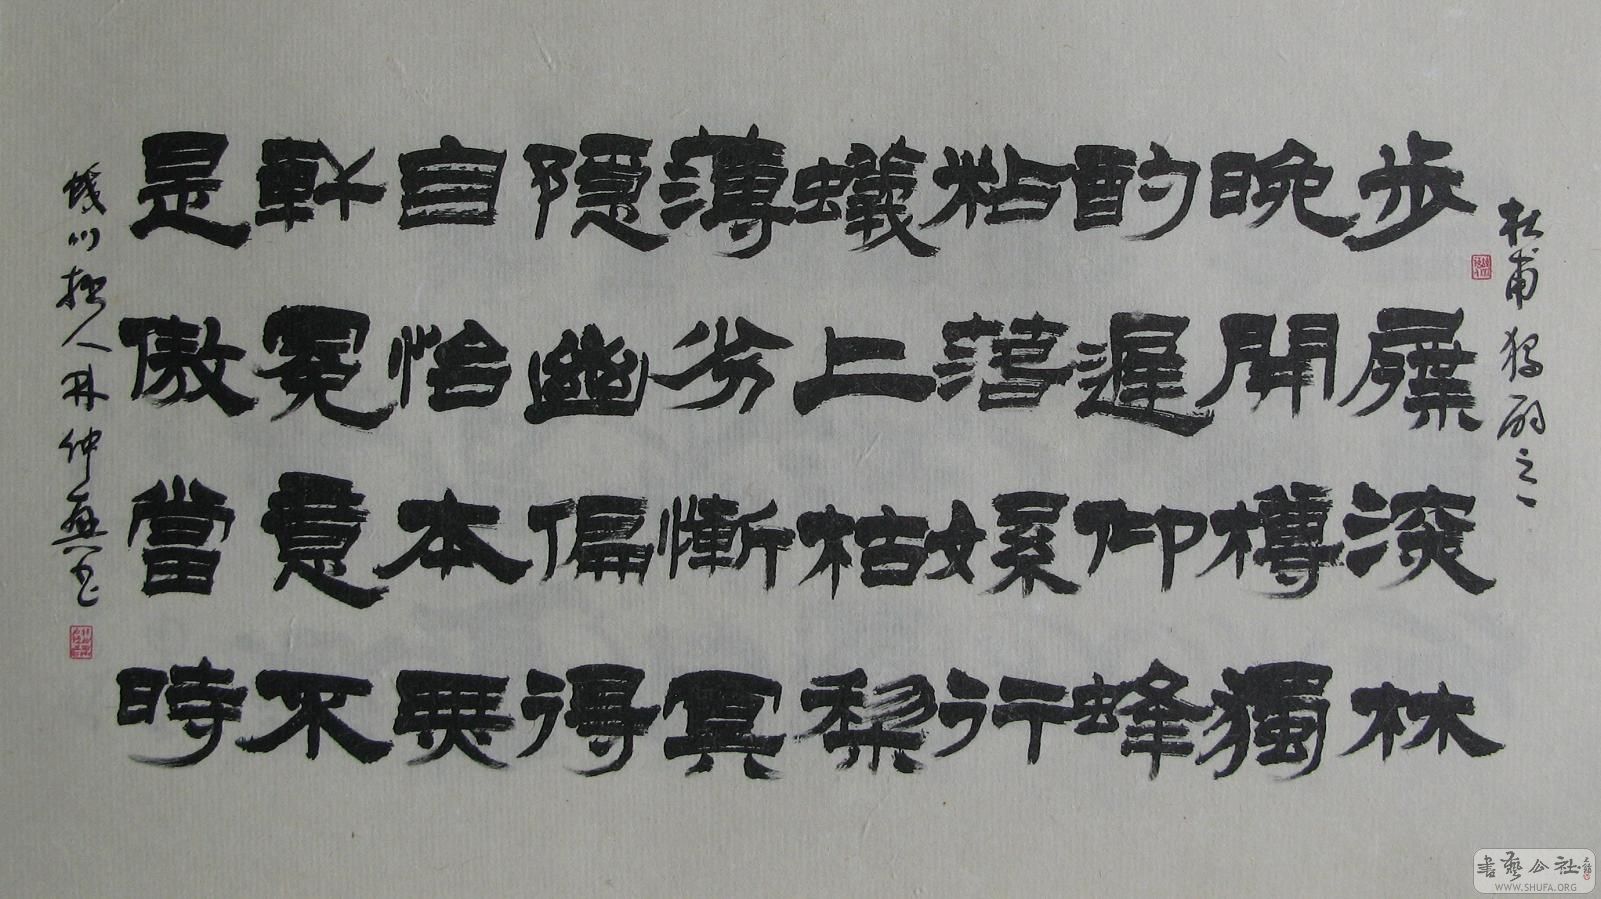 杜甫獨酌之一
步屧深林
晚開樽獨
酌遲仰蜂
粘落絮行
蟻上枯棃
薄劣慚真
隱幽偏得
自怡本無
軒冕意不
是傲當時
川拙人林仲興書
書藝公社
WWW.SHUFA.ORG